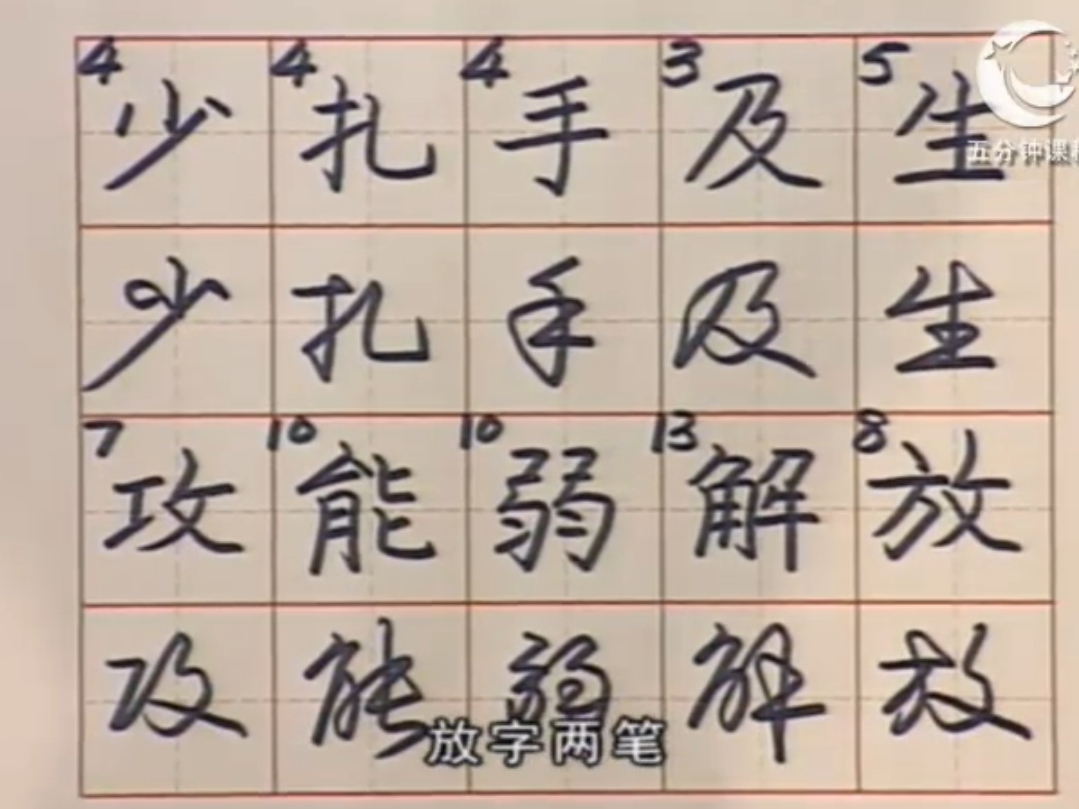 4 少 4 扎 4 手 3 及 5 生
五分钟课程
少 扎 手 及 生
7 攻 10 能 10 弱 13 解 8 放
攻 能 弱 解 放
放字两笔